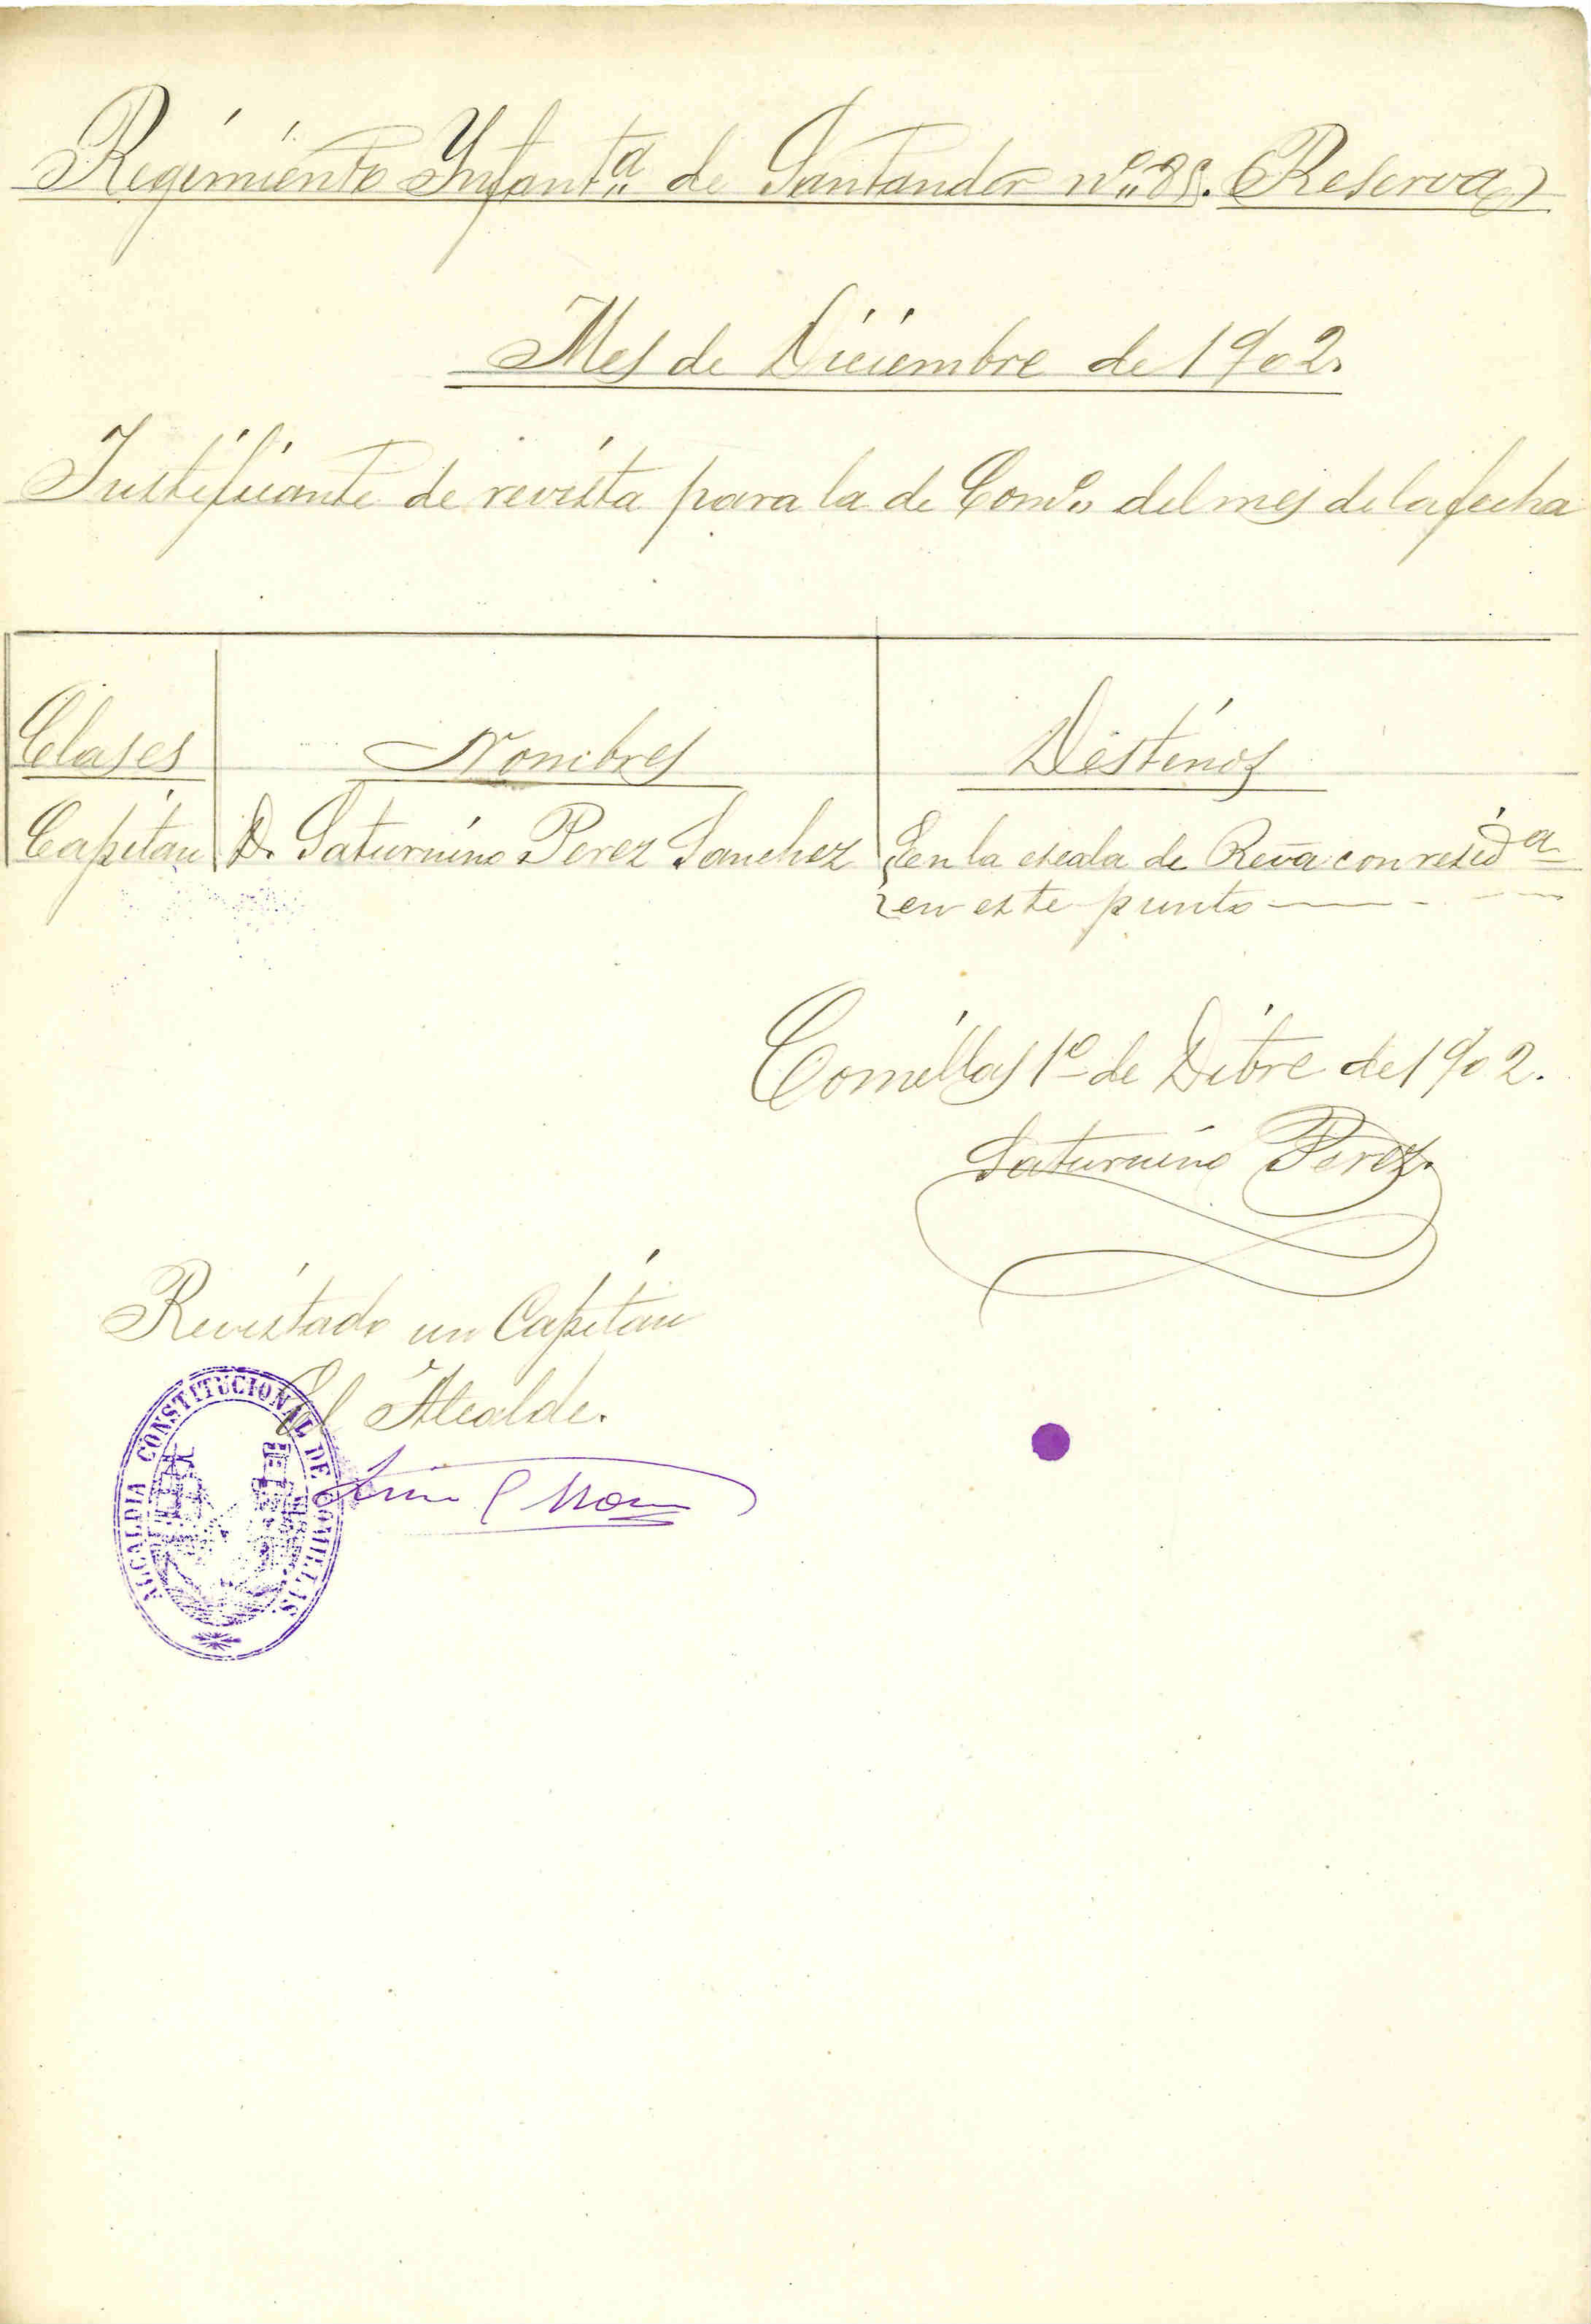 Regimiento Infantª de Santander nº 85. Reserva
Mes de Diciembre de 1902.
Justificante de revista para la de Comº del mes de la fecha
Clases Nombres Destinos
Capitan D. Saturnino Perez Sanchez En la escala de Rva con residª
en este punto
Comillas 1º de Dibre de 1902.
Saturnino Perez.
Revistado un Capitan
El Alcalde.
ALCALDIA CONSTITUCIONAL DE COMILLAS.